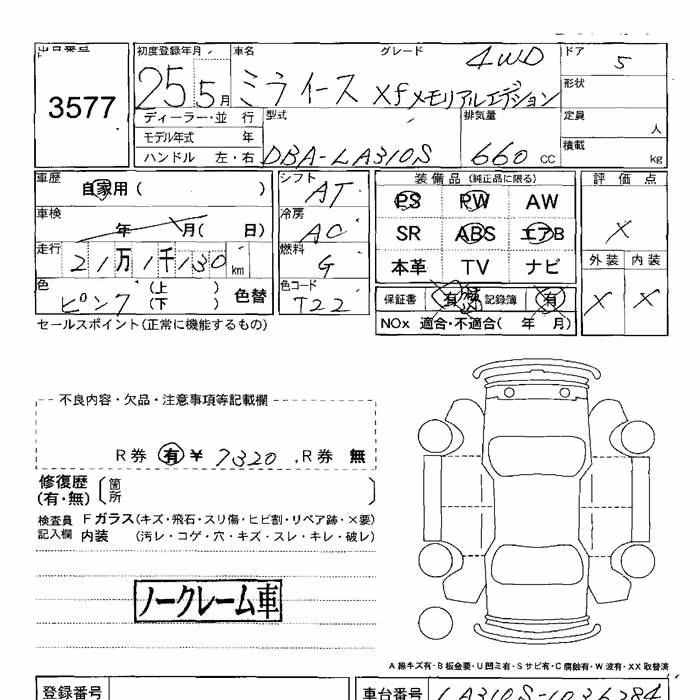 初度登録年月 車名 グレード 4WD ドア 5
3577 25 5月 ミライース Xfメモリアルエディション 形状
ディーラー・並 行 型式 排気量 定員 人
モデル年式 年
ハンドル 左・右 DBA-LA310S 660 cc 積載 kg
車歴 自家用( ) シフト AT 装備品(純正品に限る) 評価点
PS PW AW
車検 年 月( 日) 冷房 AC SR ABS エアB X
走行 21万1千130km 燃料 G 本革 TV ナビ 外装 内装
色 ピンク (上) (下) 色替 色コード T22 保証書 有 記録簿 有 X X
セールスポイント(正常に機能するもの) NOx 適合・不適合( 年 月)
不良内容・欠品・注意事項等記載欄
R券 有 ¥ 7320 . R券 無
修復歴 (有・無) 箇所
検査員 Fガラス(キズ・飛石・スリ傷・ヒビ割・リペア跡・×要)
記入欄 内装 (汚レ・コゲ・穴・キズ・スレ・キレ・破レ)
ノークレーム車
A 線キズ有・B 板金要・U 凹ミ有・S サビ有・C 腐蝕有・W 波有・XX 取替済
登録番号 車台番号 LA310S-1036384